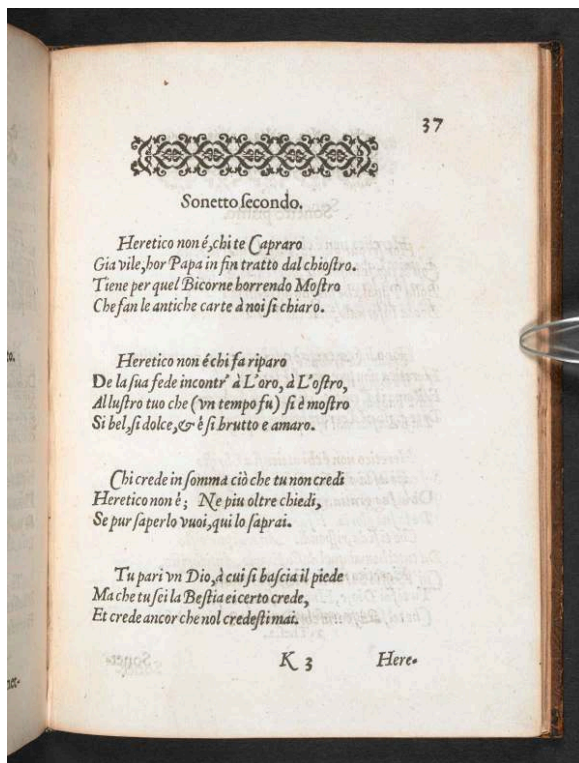 37
Sonetto ſecondo.
Heretico non é, chi te Capraro
Gia vile, hor Papa in fin tratto dal chioſtro.
Tiene per quel Bicorne horrendo Moſtro
Che fan le antiche carte à noi ſi chiaro.
Heretico non é chi fa riparo
De la ſua fede incontr' à L'oro, à L'oſtro,
Al luſtro tuo che (vn tempo fu) ſi è moſtro
Si bel, ſi dolce, & è ſi brutto e amaro.
Chi crede in ſomma ciò che tu non credi
Heretico non è; Ne piu oltre chiedi,
Se pur ſaperlo vuoi, qui lo ſaprai.
Tu pari vn Dio, à cui ſi baſcia il piede
Ma che tu ſei la Beſtia ei certo crede,
Et crede ancor che nol credeſti mai.
K 3 Here-